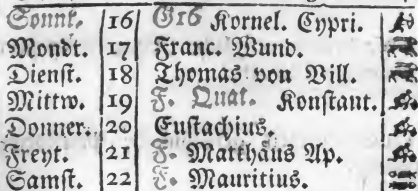 Sonnt. 16 G16 Kornel. Cypri.
Mondt. 17 Franc. Wund.
Dienst. 18 Thomas von Vill.
Mittw. 19 F. Quat. Konstant.
Donner. 20 Eustachius.
Freyt. 21 F. Matthäus Ap.
Samst. 22 F. Mauritius.